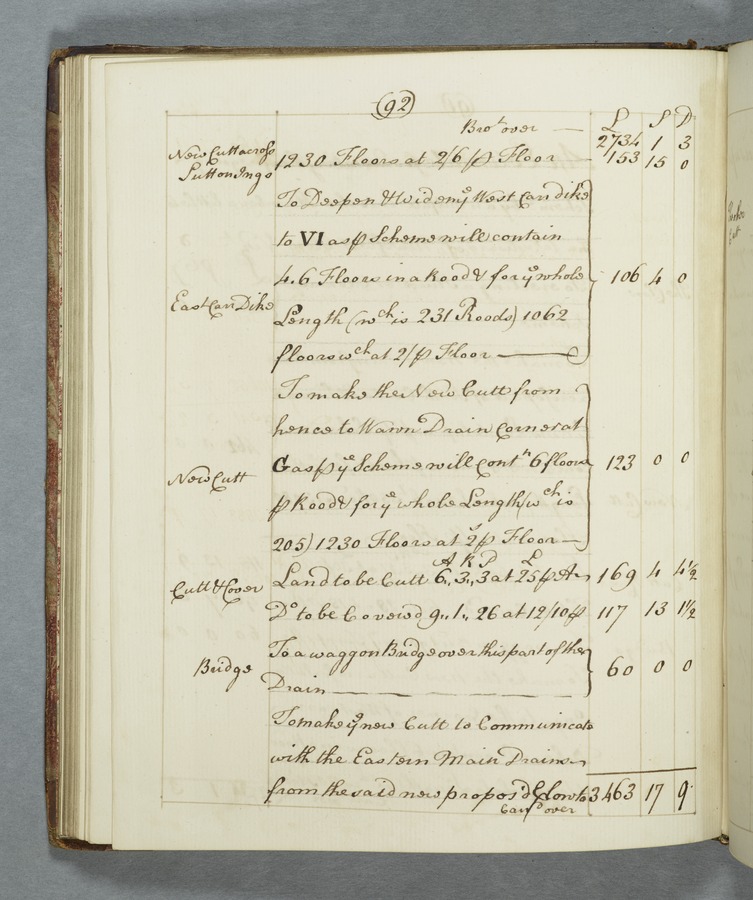 (92)
£ S D
Bro.t over — 2734 1 3
New Cutt across
Sutton Ings
1230 Floors at 2/6 ⅌ Floor — 153 15 0
To Deepen & widen yᵉ West Carr dike
to VI as ⅌ Scheme will contain
4.6 Floors in a Rood & for yᵉ whole 106 4 0
East Carr Dike
Length (wᶜʰ is 231 Roods) 1062
floors wᶜʰ at 2/ ⅌ Floor —
To make the New Cutt from
hence to Wawn Drain Corner at
G as ⅌ yᵉ Scheme will contⁿ 6 floors 123 0 0
New Cutt
⅌ Rood & for yᵉ whole Length (wᶜʰ is
205) 1230 Floors at 2ˢ ⅌ Floor —
A R P £
Cutt & Cover Land to be Cutt 6,, 3,, 3 at 25 ⅌ Ar 169 4 4½
Dᵒ to be Coverd 9,, 1,, 26 at 12/10 ⅌ 117 13 1½
To a waggon Bridge over this part of the
Bridge 60 0 0
Drain —
To make yᵉ new Cutt to Communicate
with the Eastern Main Drain
from the said new propos'd to 3463 17 9
Carᵈ over